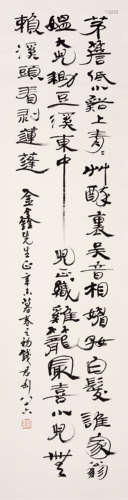 茅簷低小谿上青〻艸醉裏吳音相媚好白髮誰家翁
媼大兒鋤豆溪東中兒正織雞籠最喜小兒無
賴溪頭看剝蓮蓬
金鑫先生正辛未暮春之初錢君匋八十六